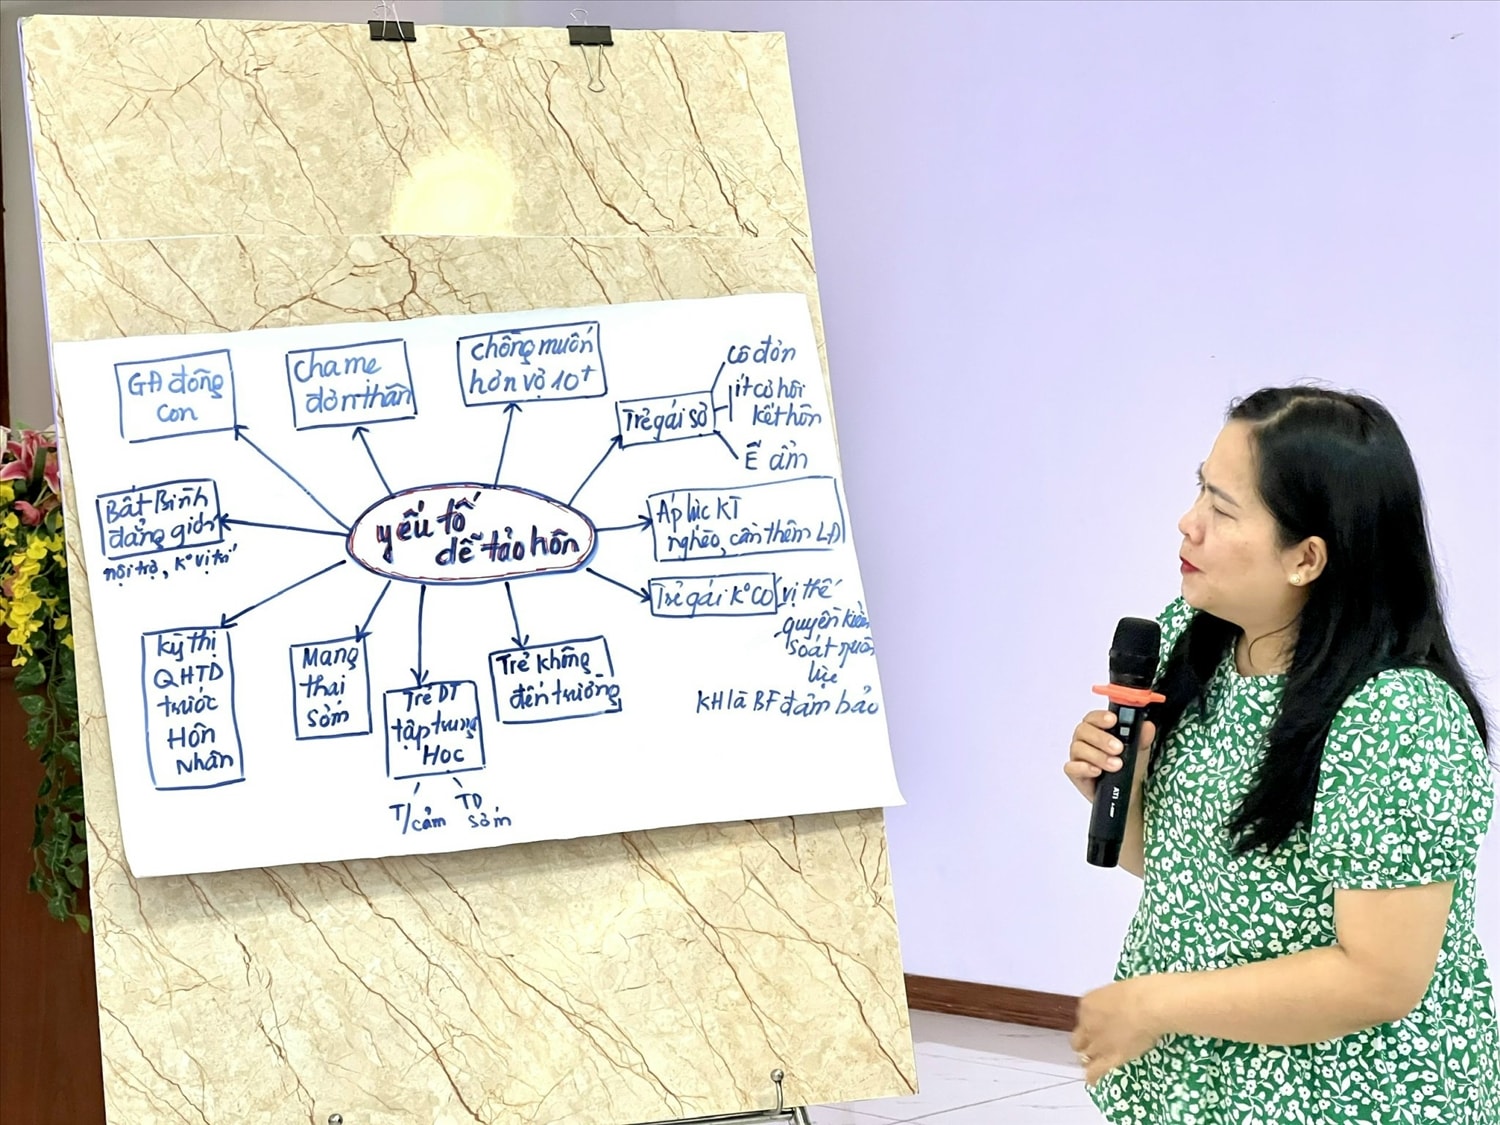 GĐ đông
con
Cha mẹ
đơn thân
Chồng muốn
hơn vợ 10+
Trẻ gái sợ
Cô đơn
ít cơ hội
kết hôn
Ế ẩm
Bất Bình
đẳng giới
nội trợ, K° vị trí
yếu tố
dễ tảo hôn
Áp lực KT
nghèo, cần thêm LĐ
Trẻ gái K° CÓ
vị thế
quyền kiểm
soát nguồn
lực
KH là BF đảm bảo
Kỳ thị
QHTD
trước
Hôn
Nhân
Mang
thai
sớm
Trẻ DT
tập trung
Học
T/cảm
TD
sớm
Trẻ không
đến trường
ATI